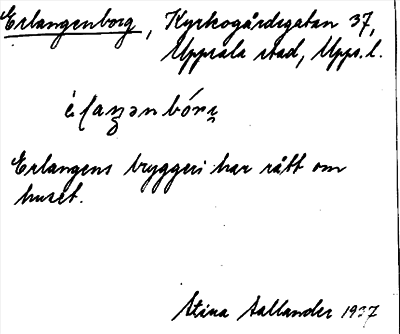 Erlangenborg, Kyrkogårdsgatan 37,
Uppsala stad, Upps. l.
Erlangens bryggeri har rått om
huset.
Stina Sallander 1937